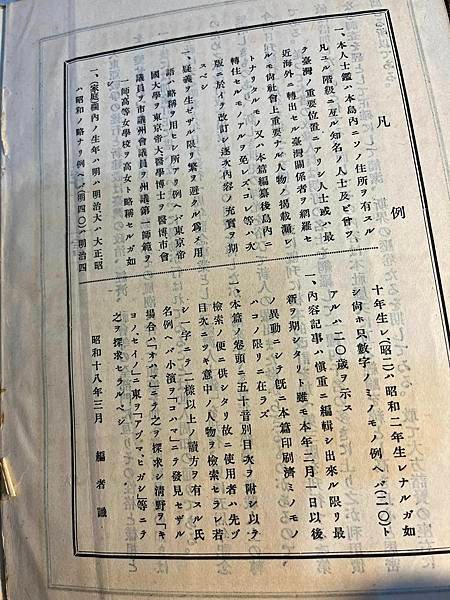 凡例
一、本人士鑑ハ本島內ニソノ住所ヲ有スル
凡ユル階級ニ亙ル知名ノ人士及ビ曾ツ
テ臺灣ノ重要位置ニアリシ人士或ハ最
近海外ニ轉出セル臺灣關係者ヲ網羅セ
ルモ尙社會上重要ナル人物ノ揭載漏レ
トナリタルモノ又ハ本篇編纂後島內ニ
轉住セルモノナルヲ免レズコレ等ハ次
版ニ於イテ改訂シ逐次內容ノ充實ヲ期
スベシ
一、疑義ヲ生ゼザル限リ繁ヲ避クル爲メ用
語ハ略稱ヲ用ヒシ所アリ例ヘバ東京帝
國大學ヲ東京帝大醫學博士ヲ醫博市會
議員ヲ市議州會議員ヲ州議第一師範ヲ
一師高等女學校ヲ高女ト略稱セルガ如
シ
一、家庭欄內ノ生年ハ明ハ明治大ハ大正昭
ハ昭和ノ略ナリ例ヘバ(明四〇)ハ明治四
十年生レ(昭二)ハ昭和二年生レナルガ如
シ尙ホ只數字ノミノモノ例ヘバ(二〇)ト
アルハ二〇歲ヲ示ス
一、內容記事ハ愼重ニ編輯シ出來ル限リ最
新ヲ期シタリト雖モ本年二月一日以後
異動ニシテ旣ニ本篇印刷濟ミノモノ
ハコノ限リニ在ラズ
一、本篇ノ卷頭ニ五十音別目次ヲ附シ以テ
檢索ノ便ニ供シタリ故ニ使用者ハ先ヅ
目次ニツキ意中ノ人物ヲ檢索セラレ若
シ一字ニシテ二樣以上ノ讀方ヲ有スル氏
名例ヘバ小濱ヲ「コハマ」ニテ發見セザル
場合「オハマ」ニテ之ヲ探求シ淸野ヲ「キ
ヨノ、セイノ」ニ東ヲ「アヅマ、ヒガシ」等ニテ
之ヲ探求セラルベシ
昭和十八年三月 編者識